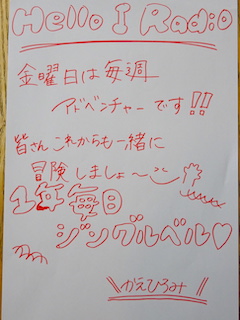 Hello I Radio
金曜日は毎週
アドベンチャーです!!
皆さんこれからも一緒に
冒険しましょ〜
1年毎日
ジングルベル♡
かえひろみ